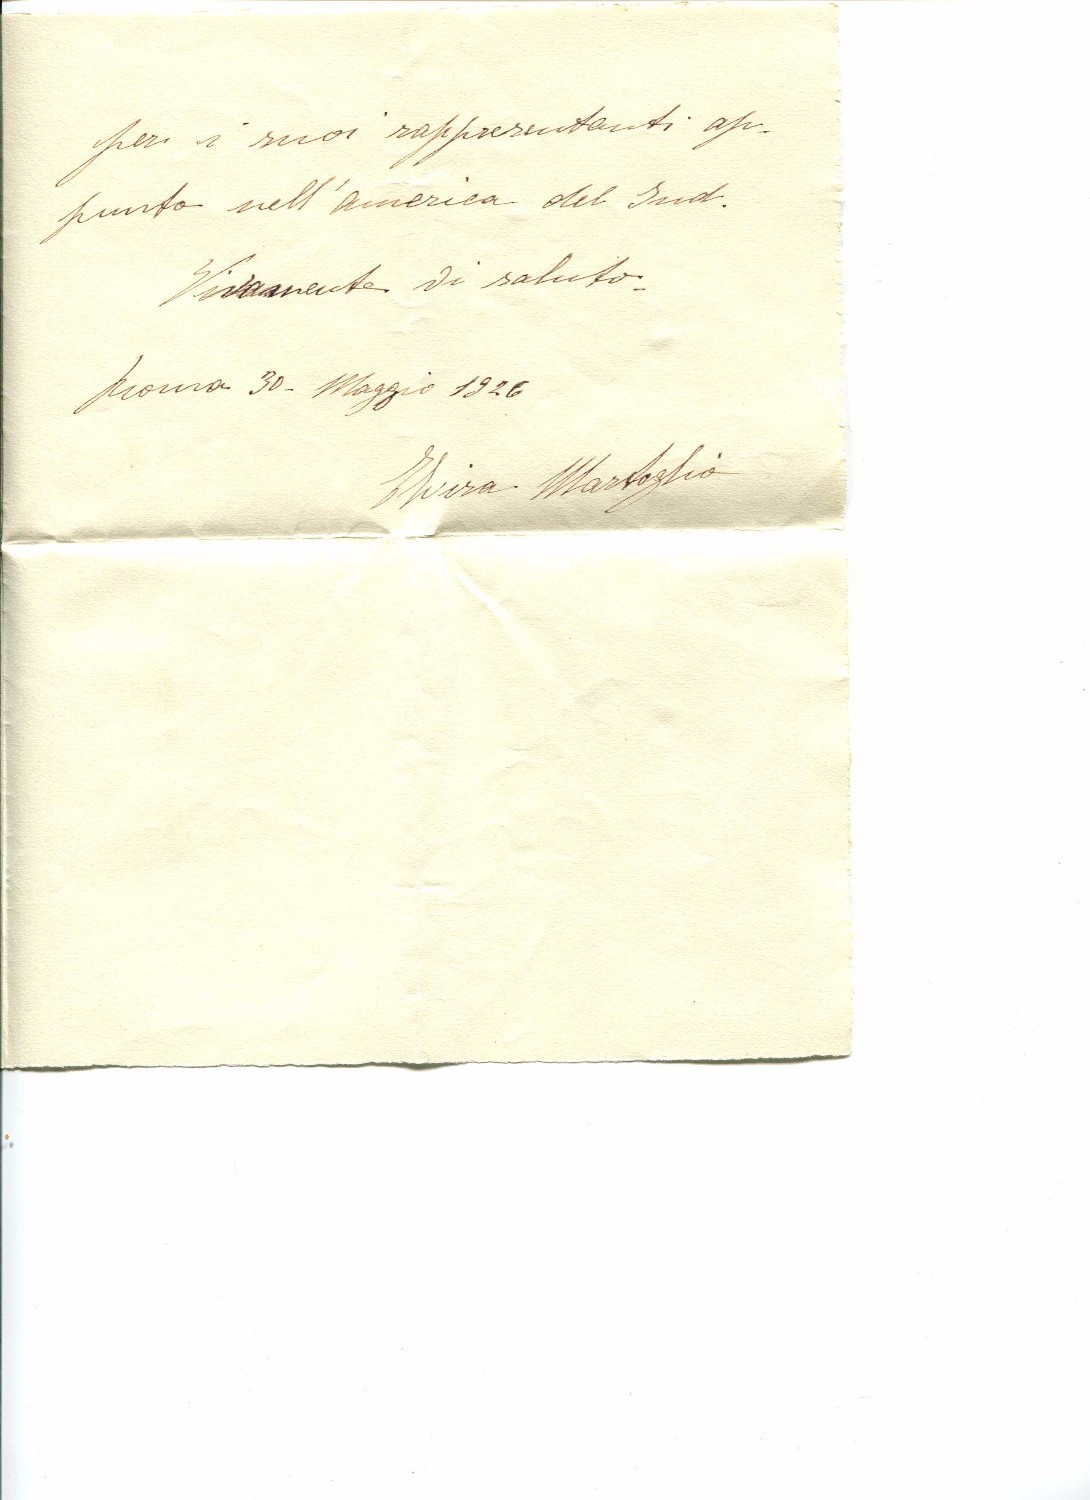 per i suoi rappresentanti ap-
punto nell'America del Sud.
Vivamente di saluto-
Roma 30- Maggio 1926
Elvira Martoglio